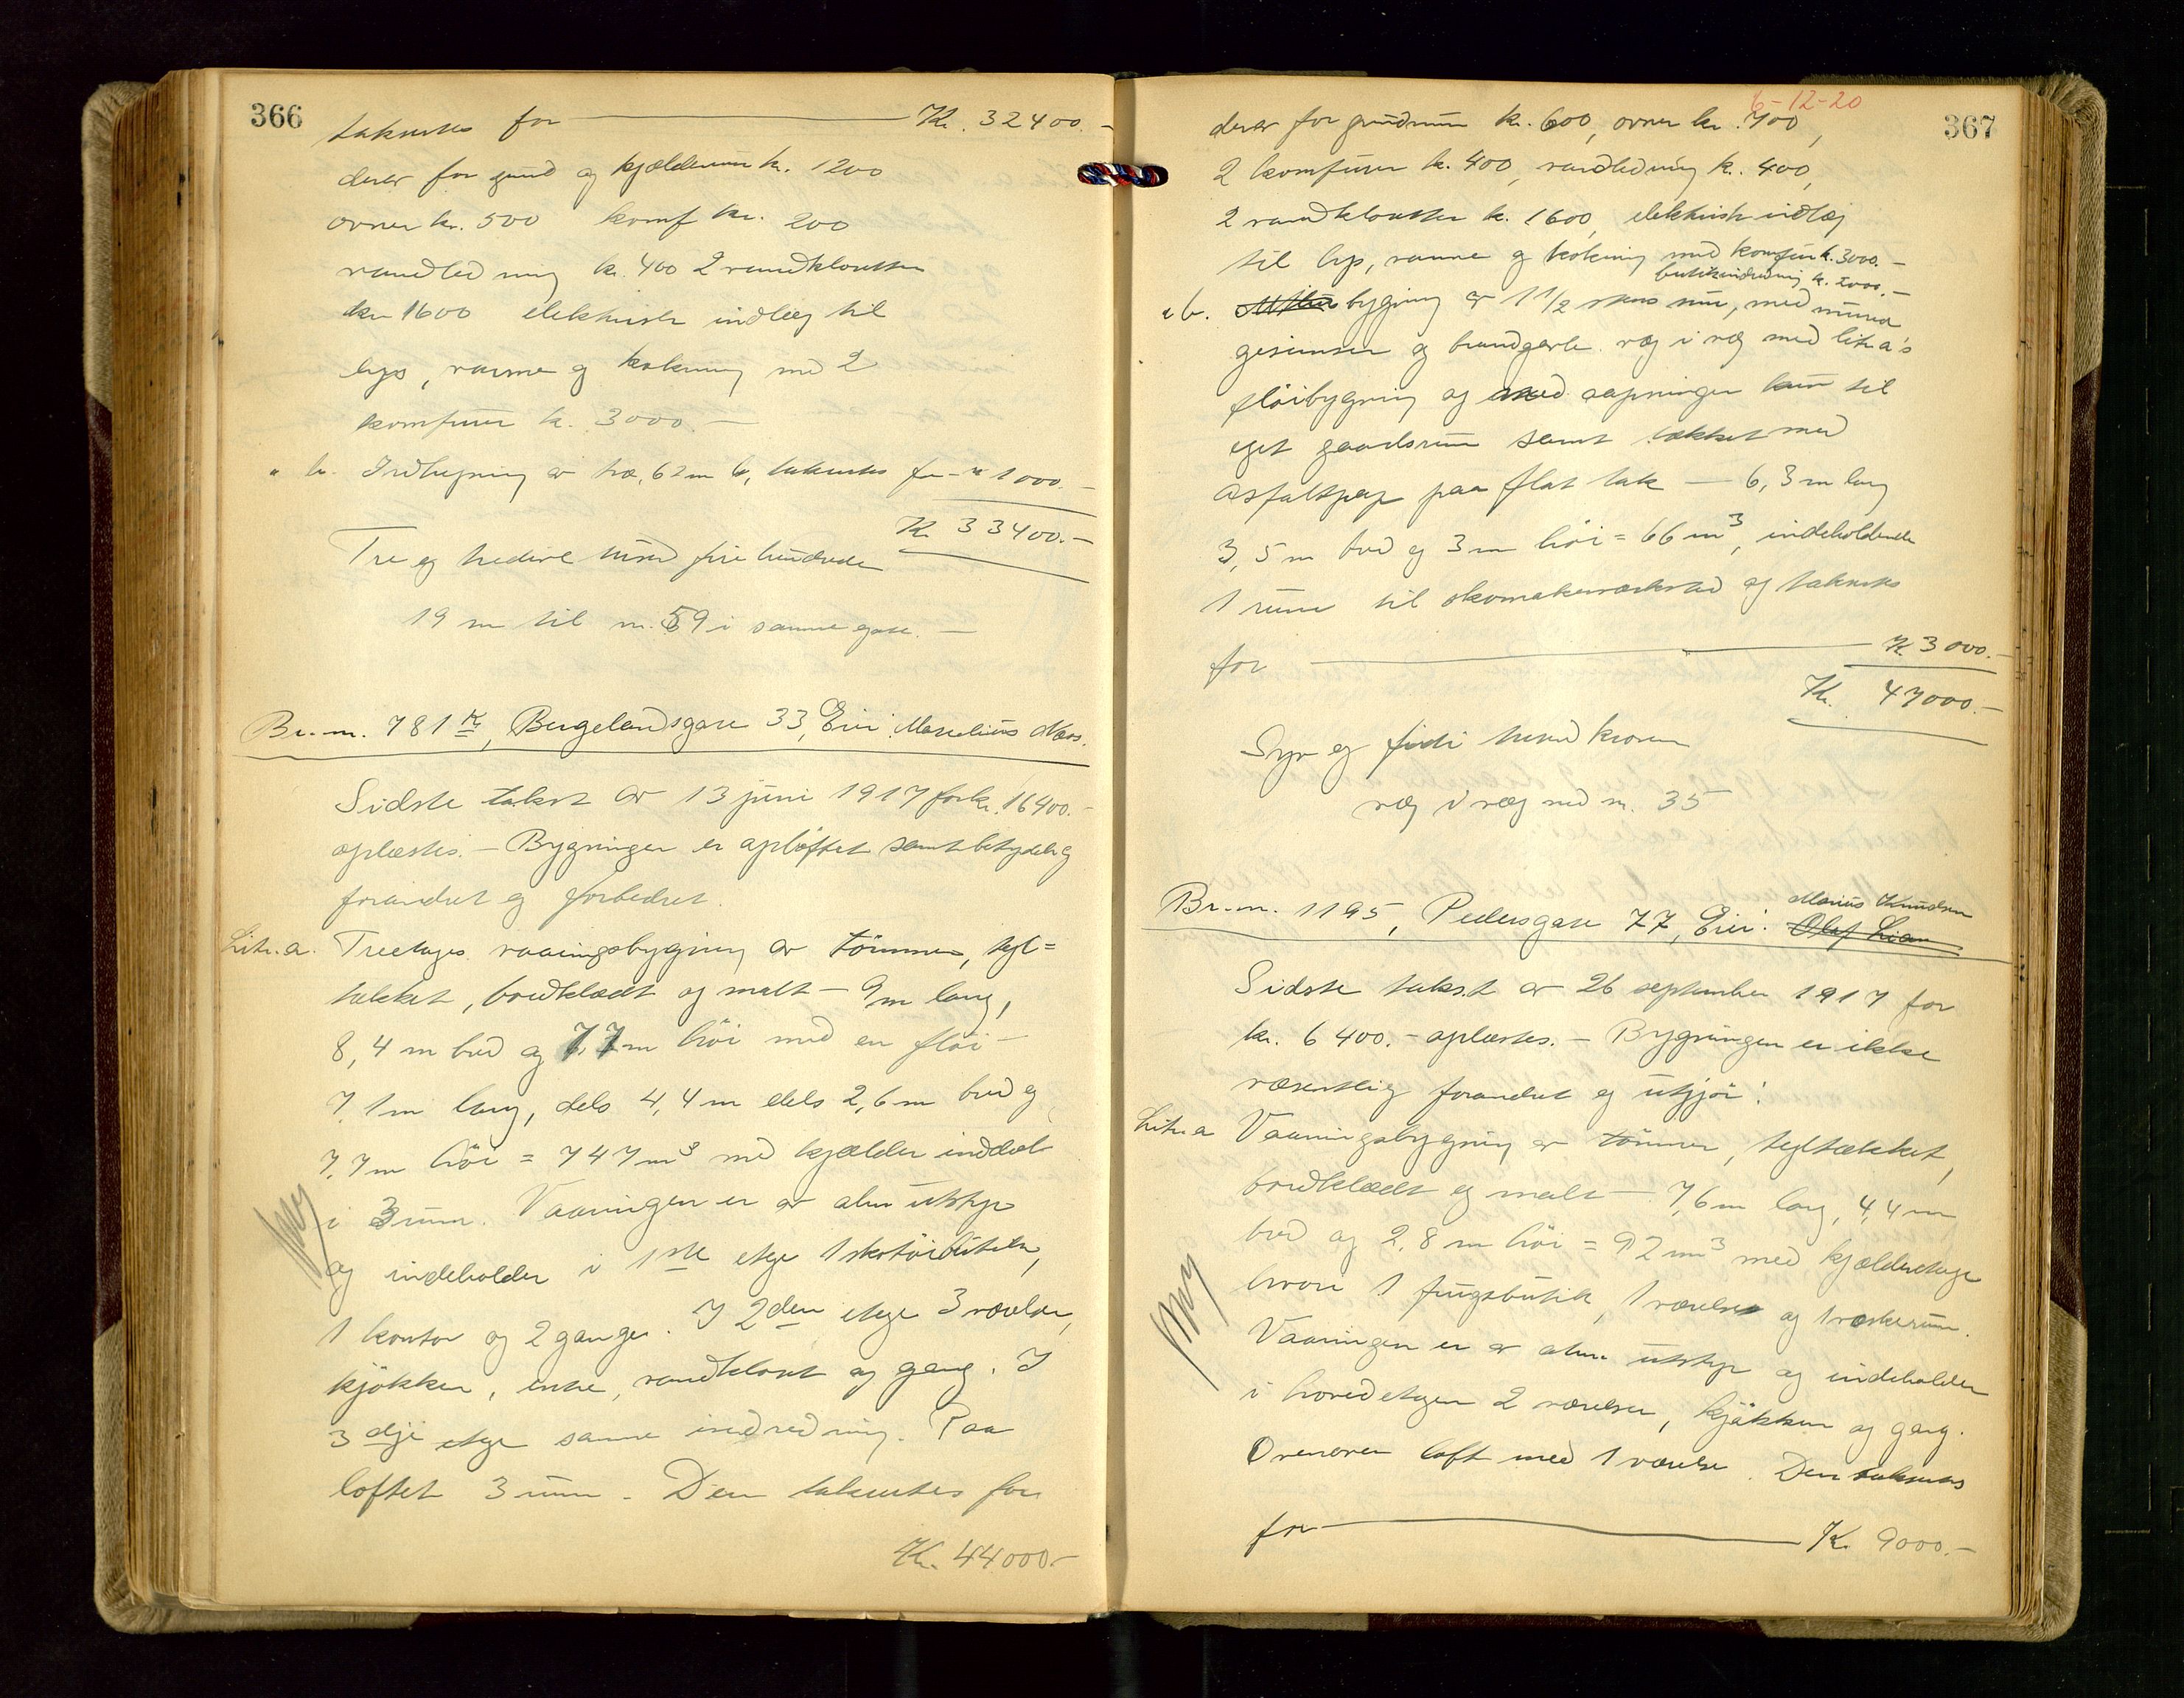 366
takseres for Kr. 32400.-
derav for grund og kjælderrum kr. 1200
ovner kr. 500 komf kr. 200
vandledning kr. 400 2 vandklosetter
kr 1600 elektrisk indlæg til
lys, varme og kokning med 2
komfurer kr. 3000.-
" b. Indbygning av træ, 62m takseres for " 1000.-
Kr. 33400.-
Tre og tredive tusend fire hundrede
19 m til nr. 59 i samme gate.-
Br.nr. 781 K, Bergelandsgate 33, Eier: Marselius Næss.
Sidste takst av 13 juni 1917 for kr. 16400.-
oplæstes.- Bygningen er opløftet samt betydelig
forandret og forbedret.
Litr. a. Treetages vaaningsbygning av tömmer, tegl=
tækket, bordklædt og malt - 9m lang,
8,4 m bred og 7,7m höi med en flöi-
7,1m lang, dels 4,4m dels 2,6m bred og
7,7m höi = 747m³ med kjælder inddelt
i 3 rum. Vaaningen er av alm utstyr
og indeholder i 1ste etage 1 skotöibutik,
1 kontor og 2 ganger. I 2den etage 3 værelser,
kjökken, entre, vandklosett og gang. I
3dje etage samme indredning. Paa
loftet 3 rum. Den takseres for
Kr. 44000.-
6-12-20
367
derav for grundrum kr. 600, ovner kr. 700,
2 komfurer kr. 400, vandledning kr. 400,
2 vandklosetter kr. 1600, elektrisk indlæg
til lys, varme og kokning med komfur kr. 3000.-
butikindredning kr. 2000.-
" b. bygning av 1 1/2 stens mur, med mured
gesimser og brandgavle væg i væg med litr a's
flöibygning og med aapninger kun til
eget gaardsrum samt tækket med
asfaltpap paa flat tak - 6,3 m lang
3,5 m bred og 3 m höi = 66 m³, indeholdende
1 rum til skomakerverksted og takseres
for K 3000.-
Kr. 47000.-
Syv og firti tusend kroner
væg i væg med nr. 35
Br.nr. 1195, Pedersgate 77, Eier: Marius Knudsen
Olaf Lian
Sidste takst av 26 september 1917 for
kr. 6400.- oplæstes.- Bygningen er ikke
væsentlig forandret og utgjör:
Litr. a Vaaningsbygning av tömmer, tegltækket,
bordklædt og malt - 7,6m lang, 4,4m
bred og 2,8 m höi = 92 m³ med kjælderetage
hvori 1 butik, 1 værelse og 1 vaskerum.
Vaaningen er av alm. utstyr og indeholder
i hovedetagen 2 værelser, kjökken og gang.
Ovenover loft med 1 værelse. Den takseres
for Kr. 9000.-